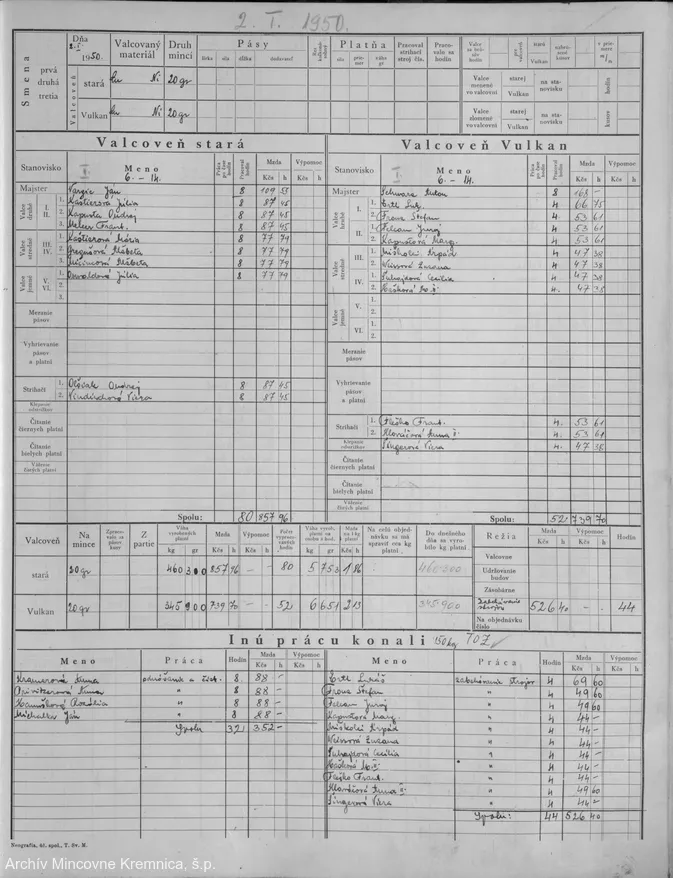 2. I. 1950.
Smena
prvá
druhá
tretia
Dňa
2.I. 1950.
Valcovaný materiál
Druh mincí
Pásy
šírka
sila
dĺžka
dodávateľ
Platňa
sila
priemer
váha gr
Pracoval strihací stroj čís.
Pracovalo sa hodín
Valcovňa
stará
Ni
20 gr
Vulkan
Ni
20 gr
Valce menené vo valcovni
starej
Vulkan
na stanovisku
hodín
Valce zlomené vo valcovni
starej
Vulkan
na stanovisku
kusov
Valcoveň stará
Valcoveň Vulkan
Stanovisko I. Meno 6. – 14. Pracoval hodín Mzda Kčs h Výpomoc Kčs h
Majster Vargic Ján 8 109 51
Valce hrubé I. 1. Kaštierová Júlia 8 87 45
II. 2. Kapusta Ondrej 8 87 45
3. Meleš Frant. 8 87 45
Valce stredné III. 1. Kaštierová Mária 8 77 79
IV. 2. Gregušová Alžbeta 8 77 79
3. Mičinová Alžbeta 8 77 79
Valce jemné V. 1. Oswaldová Júlia 8 77 79
VI. 2.
3.
Meranie pásov
Vybrievanie pásov a platní
Strihači 1. Ondrej 8 87 45
2. Viera 8 87 45
Klepanie odstrižkov
Čítanie čiernych platní
Čítanie bielych platní
Váženie čistých platní
Spolu: 80 857 96
Stanovisko I. Meno 6. – 14. Pracoval hodín Mzda Kčs h Výpomoc Kčs h
Majster Schwarz Anton 8 168 –
Valce hrubé I. 1. Ertl Luk. 4 66 75
2. Frova Štefan 4. 53 61
II. 1. Felcan Juraj 4 53 61
2. Kapustová Marg. 4 53 61
Valce stredné III. 1. Miškolci Arpád 4 47 38
2. Weissová Zuzana 4 47 38
IV. 1. Suhajková Cecilia 4. 47 38
2. Hašková M. 4. 47 38
Valce jemné V. 1.
2.
VI. 1.
2.
Meranie pásov
Vybrievanie pásov a platní
Strihači 1. Fleško Frant. 4. 53 61
2. Hlaváčová Anna 4. 53 61
Klepanie odstrižkov Singerová Viera 4. 47 38
Čítanie čiernych platní
Čítanie bielych platní
Váženie čistých platní
Spolu: 52 739 70
Valcoveň
Na mince
Z partie
Váha vyrobených platní kg gr
Mzda Kčs h
Výpomoc Kčs h
Počet vypracovaných hodín
Váha vyrob. platní na osobu à hod. kg gr
Mzda na 1 kg platní Kčs h
Na celú objednávku sa má upraviť era kg platní
Do dnešného dňa sa vyrobilo kg platní
stará 20 gr 460 300 857 96 – – 80 5 753 1 86 460·300
Vulkan 20 gr 345 900 739 70 – – 52 6 651 2 13 345·900
Réžia Mzda Kčs h Výpomoc Kčs h Hodín
Valcovne
Udržiavanie budov
Zásobárne
Zabehávanie strojov 526 40 – – 44
Na objednávku číslo
Inú prácu konali 150 kg 70Z
Meno Práca Hodín Mzda Kčs h Výpomoc Kčs h
Kramerová Anna 8. 88 –
Anna " 8 88 –
Rozália " 8 88 –
Michalka Ján " 8 88 –
Spolu 32 352 –
Meno Práca Hodín Mzda Kčs h Výpomoc Kčs h
Ertl Lukáš zabehávanie strojov 4 69 60
Frova Štefan " 4 49 60
Felcan Juraj " 4 49 60
Kapustová Marg. " 4 44 –
Miškolci Arpád " 4 44 –
Weissová Zuzana " 4 44 –
Suhajková Cecilia " 4 44 –
Hašková M. " 4 44 –
Fleško Frant. " 4 44 –
Hlaváčová Anna " 4 49 60
Singerová Viera " 4 44 –
Spolu: 44 526 40
Neografia, úč. spol., T. Sv. M.
Archív Mincovne Kremnica, š.p.